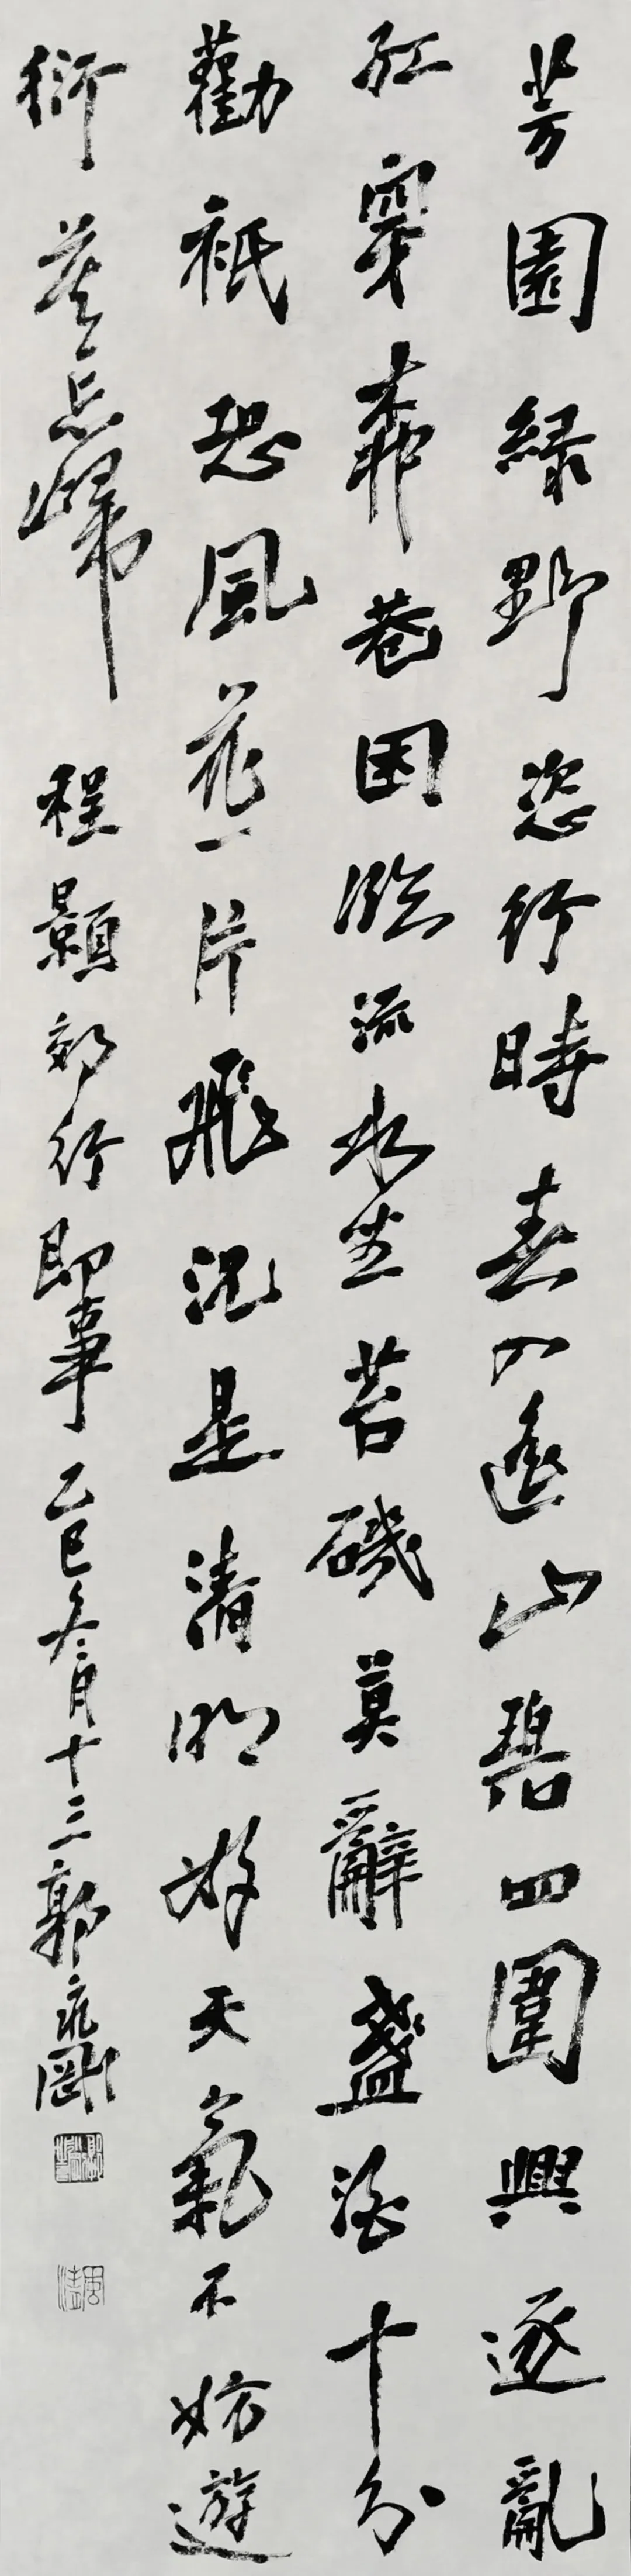 芳園緑野恣行時春入遙山碧四圍興逐亂
紅穿柳巷困臨流水坐苔磯莫辭盞酒十分
勸祇恐風花一片飛況是清明好天氣不妨遊
衍莫忘歸 程顥郊行即事 乙巳冬月十三郭剛